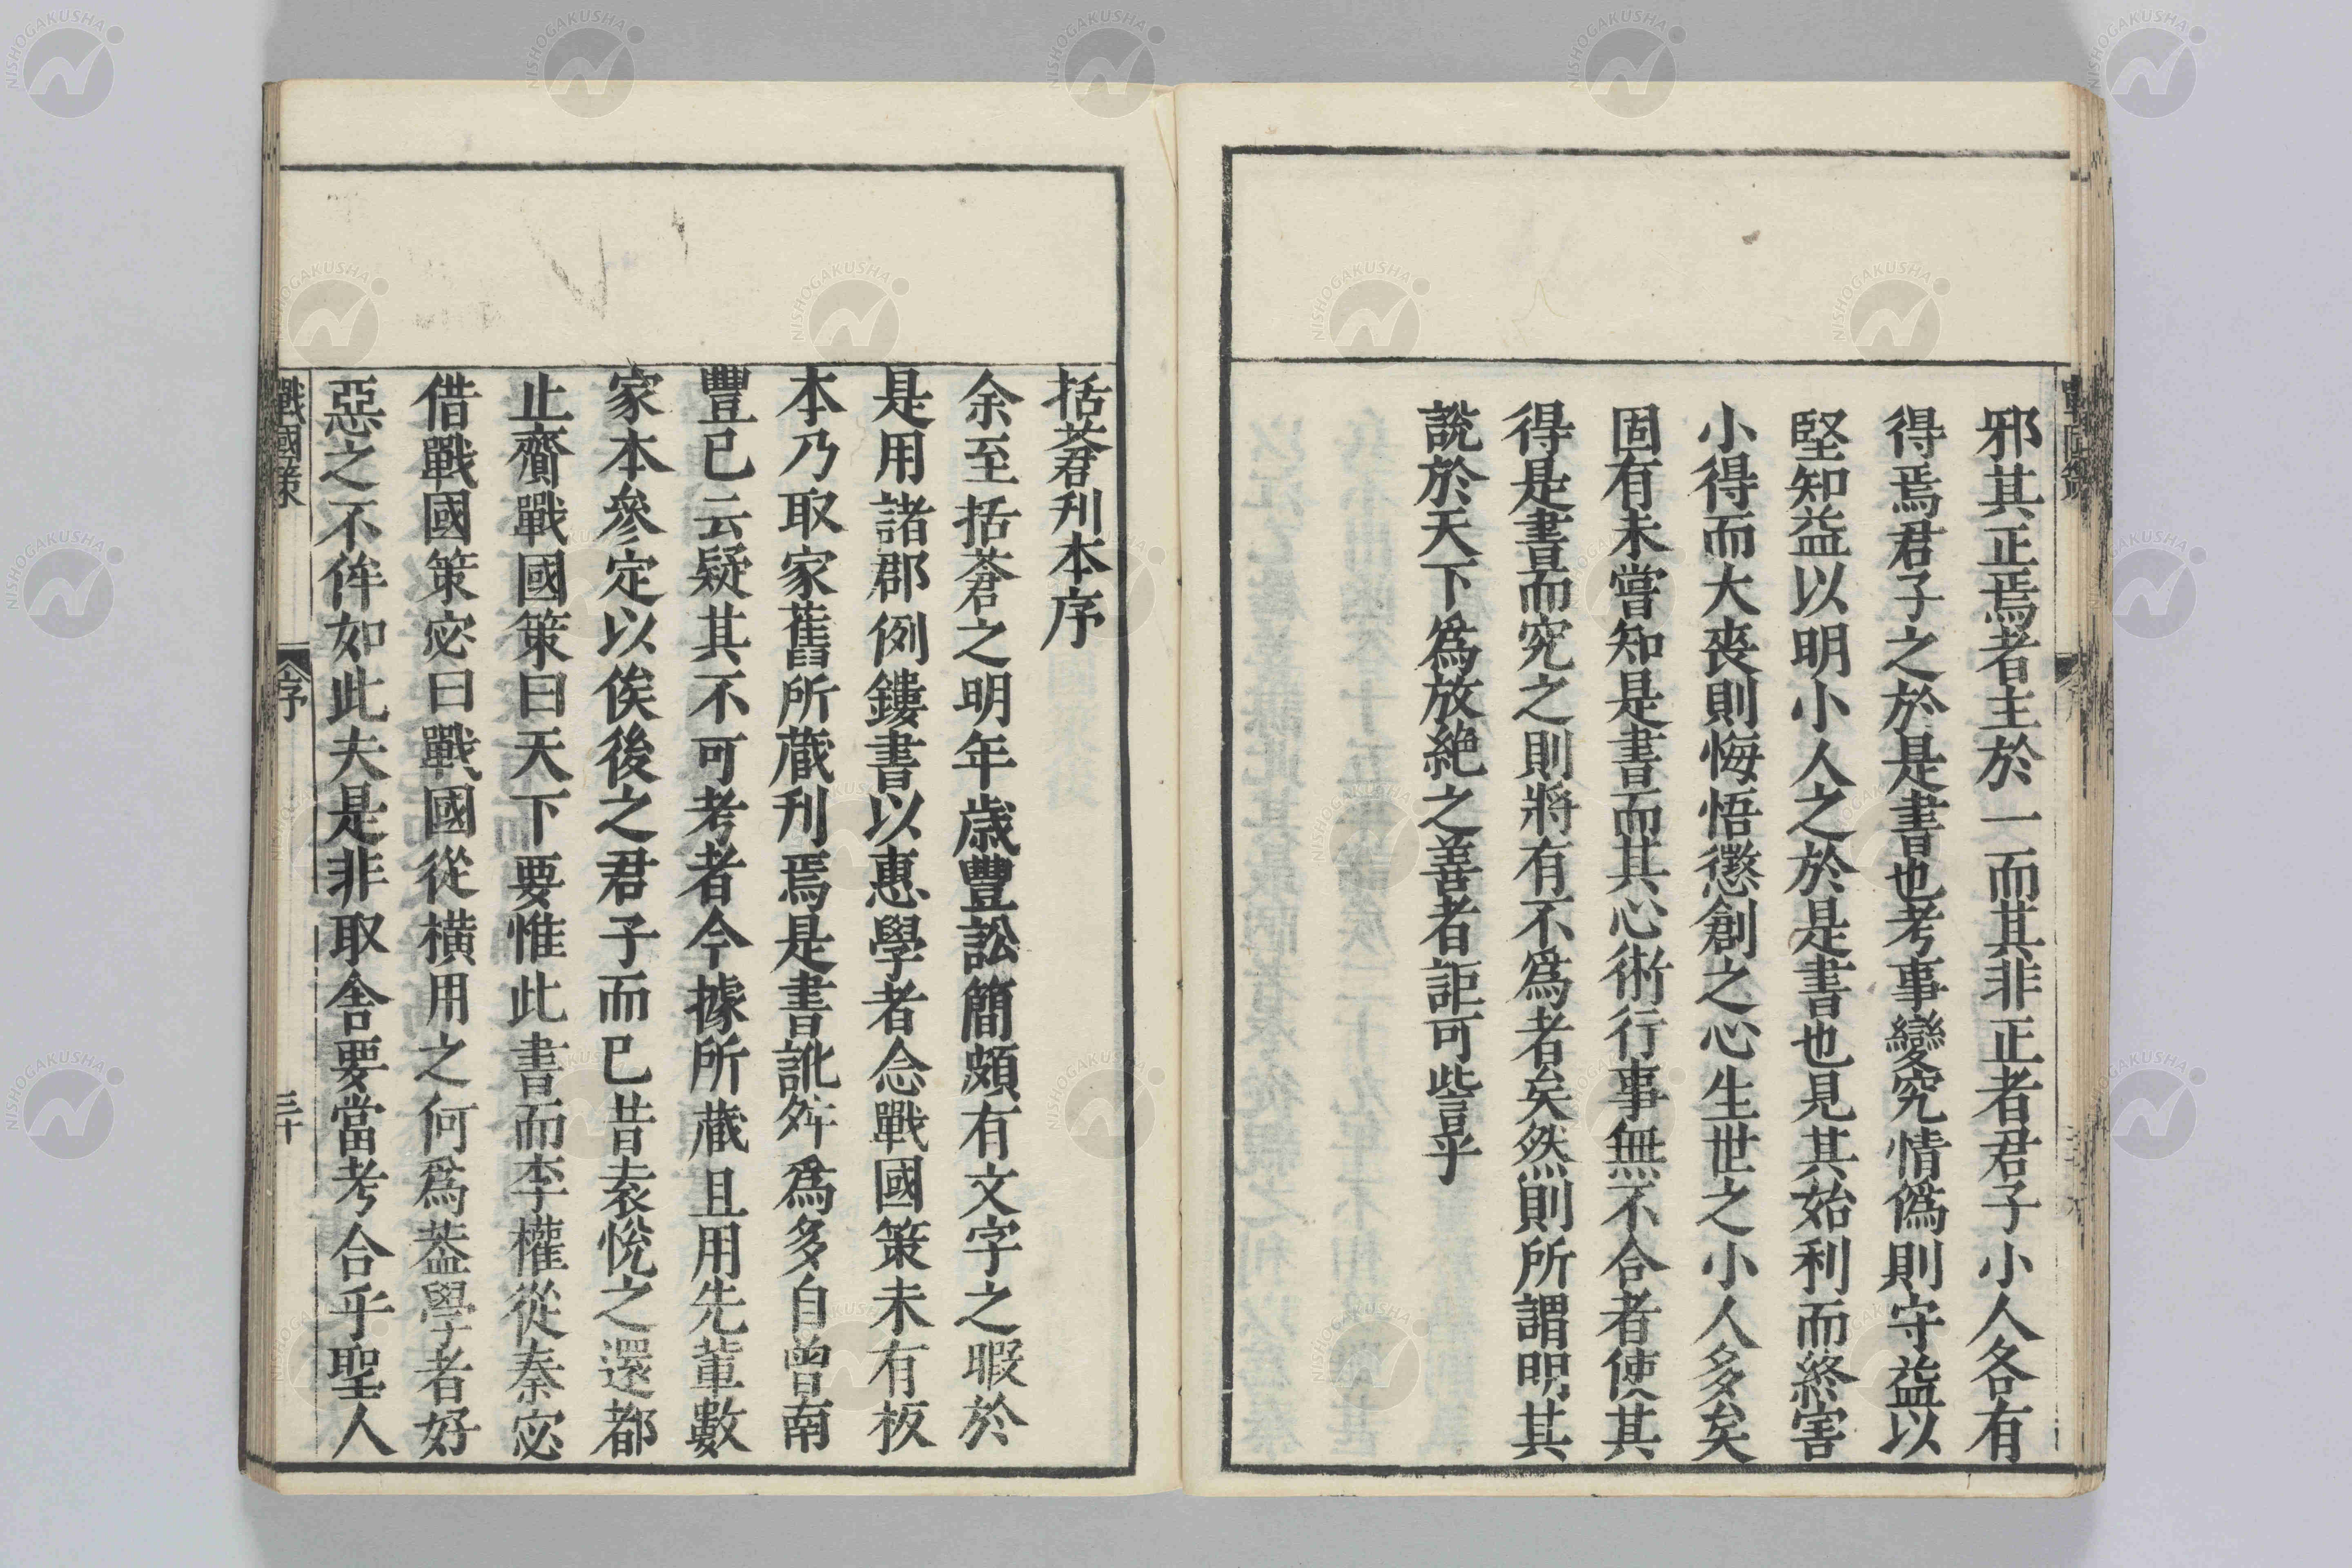 邪其正焉者主於一而其非正者君子小人各有
得焉君子之於是書也考事變究情僞則守益以
堅知益以明小人之於是書也見其始利而終害
小得而大喪則悔悟懲創之心生世之小人多矣
固有未嘗知是書而其心術行事無不合者使其
得是書而究之則將有不爲者矣然則所謂明其
說於天下爲放絶之善者詎可訾乎
括蒼刋本序
余至括蒼之明年歳豐訟簡頗有文字之暇於
是用諸郡例鏤書以惠學者念戰國策未有板
本乃取家舊所蔵刋焉是書訛舛爲多自曾南
豐已云疑其不可考者今據所蔵且用先軰數
家本參定以俟後之君子而已昔袁悅之還都
止齎戰國策曰天下要惟此書而李權從秦宓
借戰國策宓曰戰國從橫用之何爲葢學者好
惡之不侔如此夫是非取舎要當考合乎聖人
戰國策
序
三十
NISHOGAKUSHA